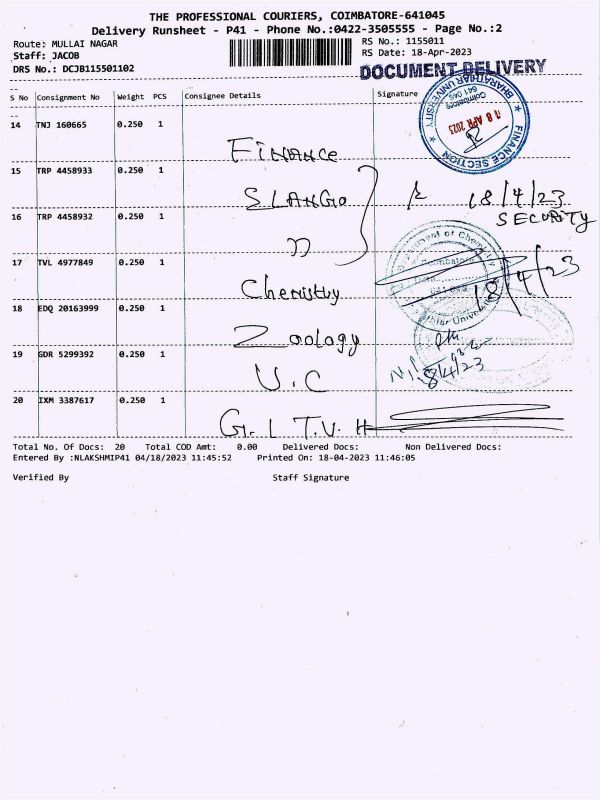 THE PROFESSIONAL COURIERS, COIMBATORE-641045
Delivery Runsheet - P41 - Phone No.:0422-3505555 - Page No.:2
Route: MULLAI NAGAR
Staff: JACOB
DRS No.: DCJB115501102
RS No.: 1155011
RS Date: 18-Apr-2023
DOCUMENT DELIVERY
S No Consignment No Weight PCS Consignee Details Signature
BHARATHIAR UNIVERSITY
Coimbatore
641 046
18 APR 2023
FINANCE SECTION
14 TNJ 160665 0.250 1 FINANCE
15 TRP 4458933 0.250 1 18/4/23
SECURITY
16 TRP 4458932 0.250 1 "
17 TVL 4977849 0.250 1 Chemistry 18/4/23
18 EDQ 20163999 0.250 1 Zoology
19 GDR 5299392 0.250 1 V.C 18/4/23
20 IXM 3387617 0.250 1
Total No. Of Docs: 20 Total COD Amt: 0.00 Delivered Docs: Non Delivered Docs:
Entered By :NLAKSHMIP41 04/18/2023 11:45:52 Printed On: 18-04-2023 11:46:05
Verified By Staff Signature